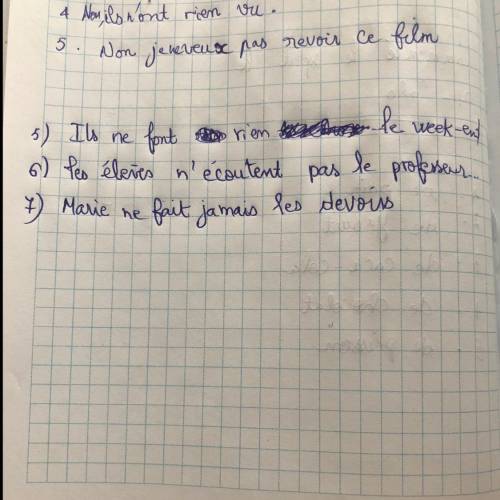 4 Non, ils n'ont rien vu.
5. Non je neveux pas revoir ce film
5) Ils ne font rien le week-end
6) Les élèves n'écoutent pas le professeur...
7) Marie ne fait jamais les devoirs